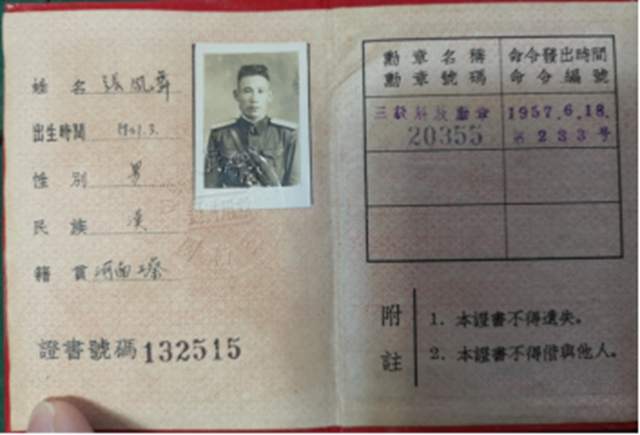 姓名
出生時間
性別 男
民族 漢
籍貫 河南上蔡
證書號碼 132515
勳章名稱 命令發出時間
勳章號碼 命令編號
三級解放勳章 1957.6.18.
20355 第233号
附註
1. 本證書不得遺失。
2. 本證書不得借與他人。